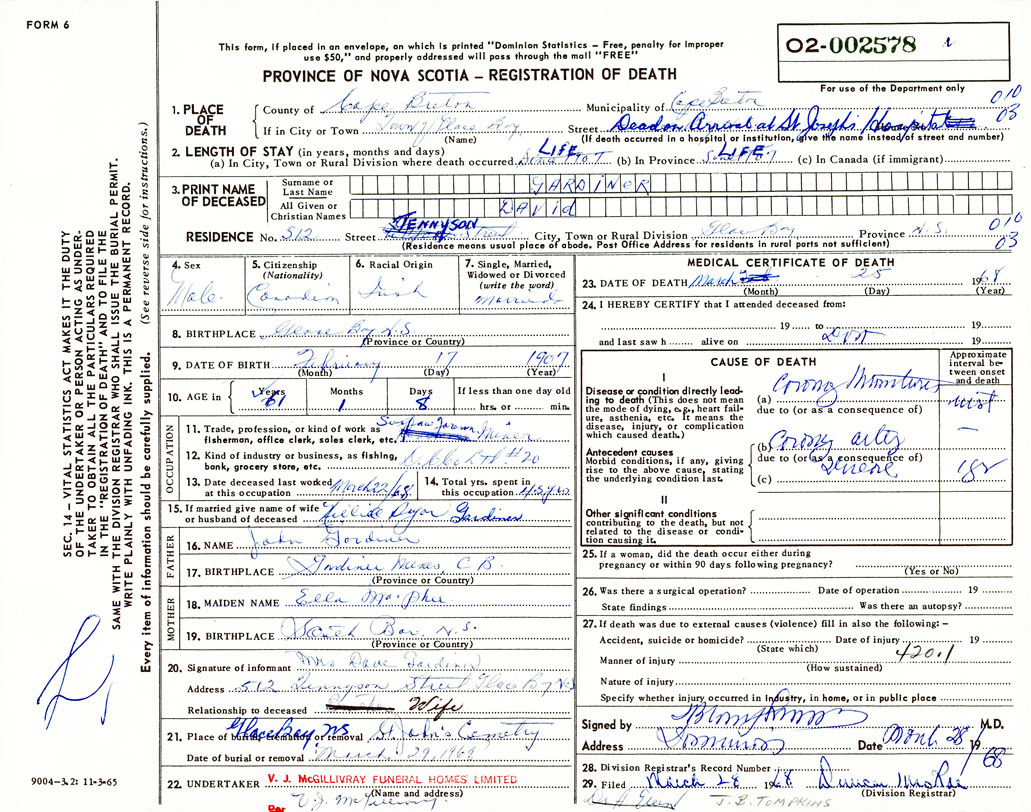 FORM 6
This form, if placed in an envelope, on which is printed "Dominion Statistics – Free, penalty for improper
use $50," and properly addressed will pass through the mail "FREE"
PROVINCE OF NOVA SCOTIA – REGISTRATION OF DEATH
O2-002578
For use of the Department only
1. PLACE OF DEATH
County of Cape Breton Municipality of Cape Breton 010
If in City or Town Town of Glace Bay Street Dead on Arrival at St Joseph's Hospital 03
(Name) (If death occurred in a hospital or institution, give the name instead of street and number)
2. LENGTH OF STAY (in years, months and days)
(a) In City, Town or Rural Division where death occurred LIFE (b) In Province LIFE (c) In Canada (if immigrant)
3. PRINT NAME OF DECEASED
Surname or Last Name GARDINER
All Given or Christian Names DAVID
RESIDENCE No. 512 Street TENNYSON City, Town or Rural Division Glace Bay Province N.S. 010
03
(Residence means usual place of abode. Post Office Address for residents in rural parts not sufficient)
4. Sex
Male
5. Citizenship (Nationality)
Canadian
6. Racial Origin
Irish
7. Single, Married, Widowed or Divorced (write the word)
Married
8. BIRTHPLACE Glace Bay N.S.
(Province or Country)
9. DATE OF BIRTH February 17 1907
(Month) (Day) (Year)
10. AGE in Years 61 Months 1 Days 8 If less than one day old
hrs. or min.
OCCUPATION
11. Trade, profession, or kind of work as
fisherman, office clerk, sales clerk, etc. Miner
12. Kind of industry or business, as fishing,
bank, grocery store, etc. #20
13. Date deceased last worked
at this occupation March 22/68
14. Total yrs. spent in
this occupation 45 yrs
15. If married give name of wife
or husband of deceased Pryor Gardiner
FATHER
16. NAME John Gardiner
17. BIRTHPLACE Gardiner Mines, C.B.
(Province or Country)
MOTHER
18. MAIDEN NAME Ella MacPhee
19. BIRTHPLACE N.S.
(Province or Country)
20. Signature of informant Mrs Dave Gardiner
Address 512 Tennyson Street Glace Bay N.S
Relationship to deceased Wife
21. Place of burial, cremation or removal Glace Bay NS St. John's Cemetery
Date of burial or removal March 29, 1968
22. UNDERTAKER V. J. McGILLIVRAY FUNERAL HOMES LIMITED
(Name and address)
Per V.J. McGillivray
MEDICAL CERTIFICATE OF DEATH
23. DATE OF DEATH March 25 1968
(Month) (Day) (Year)
24. I HEREBY CERTIFY that I attended deceased from:
19 to 19
and last saw h alive on 19
CAUSE OF DEATH
Approximate interval between onset and death
I
Disease or condition directly leading to death (This does not mean the mode of dying, e.g., heart failure, asthenia, etc. It means the disease, injury, or complication which caused death.)
(a)
due to (or as a consequence of)
Antecedent causes
Morbid conditions, if any, giving rise to the above cause, stating the underlying condition last.
(b)
due to (or as a consequence of)
(c)
II
Other significant conditions
contributing to the death, but not related to the disease or condition causing it.
25. If a woman, did the death occur either during
pregnancy or within 90 days following pregnancy?
(Yes or No)
26. Was there a surgical operation? Date of operation 19
State findings Was there an autopsy?
27. If death was due to external causes (violence) fill in also the following: –
Accident, suicide or homicide? Date of injury 19
(State which) 420.1
Manner of injury
(How sustained)
Nature of injury
Specify whether injury occurred in Industry, in home, or in public place
Signed by M.D.
Address Date 28 1968
28. Division Registrar's Record Number
29. Filed March 28 1968 Duncan MacRae
(Division Registrar)
J. B. TOMPKINS
SEC. 14 – VITAL STATISTICS ACT MAKES IT THE DUTY
OF THE UNDERTAKER OR PERSON ACTING AS UNDER-
TAKER TO OBTAIN ALL THE PARTICULARS REQUIRED
IN THE "REGISTRATION OF DEATH" AND TO FILE THE
SAME WITH THE DIVISION REGISTRAR WHO SHALL ISSUE THE BURIAL PERMIT.
WRITE PLAINLY WITH UNFADING INK. THIS IS A PERMANENT RECORD.
Every item of information should be carefully supplied. (See reverse side for instructions.)
9004–3.2: 11-3-65